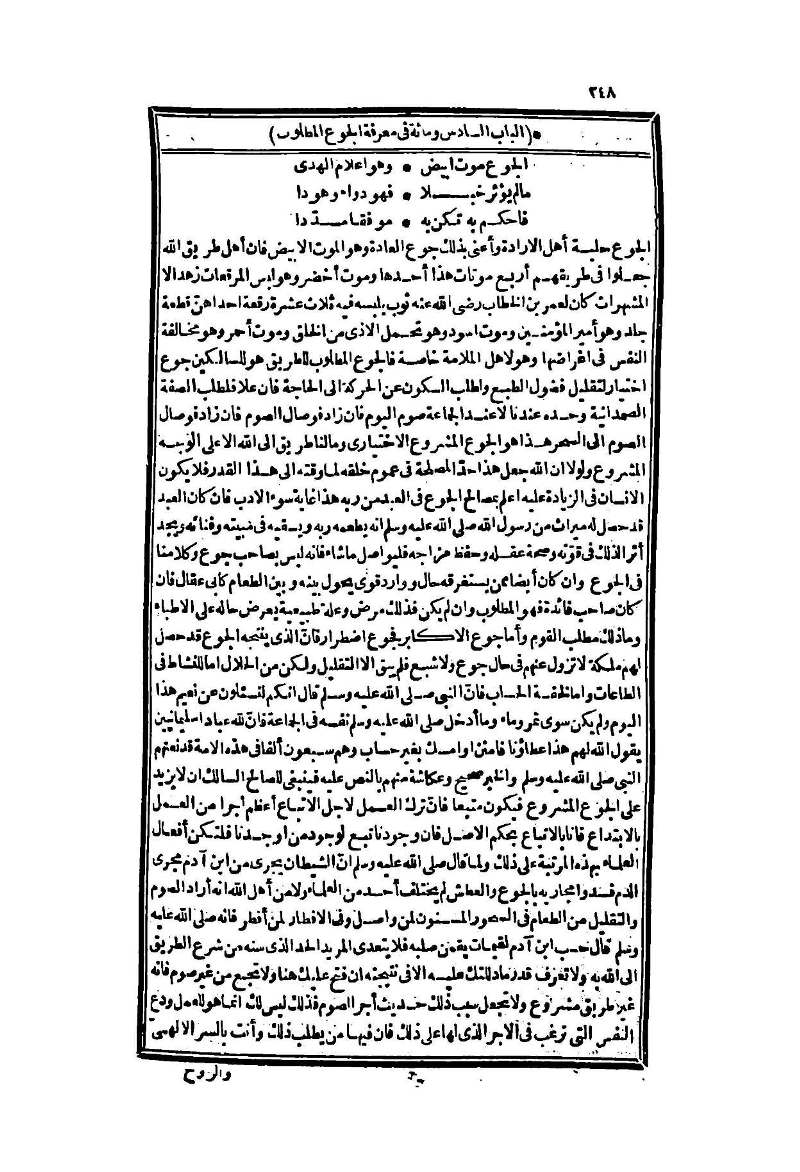 ٢٤٨
* (الباب السادس ومائة فى معرفة الجوع المطلوب)
الجوع موت ابيض * وهو اعلام الهدى
مالم يؤثر خبلا * فهو دواء وهو دا
فاحكم به تمكن به * موفقا مسددا
الجوع حلية أهل الارادة وأعنى بذلك جوع العادة وهو الموت الابيض فان أهل طريق الله
جعلوا فى طريقهم أربع موتات هذا أحدها وموت أخضر وهو لبس المرقعات زهدا لا
المشهرات كان لعمر بن الخطاب رضى الله عنه ثوب يلبسه فيه ثلاث عشرة رقعة احداهن قطعة
جلد وهو أمير المؤمنين وموت اسود وهو تحمل الاذى من الخلق وموت أحمر وهو مخالفة
النفس فى اغراضها وهو لاهل الملامة خاصة فالجوع المطلوب للطريق هو للسالكين جوع
اختيار لتقليل فضول الطبع ولطلب السكون عن الحركة الى الحاجة فان علا فلطلب الصفة
الصمدانية وحده عندنا لا عند الجماعة صوم اليوم فان زاد فوصال الصوم فان زاد فوصال
الصوم الى السحر هذا هو الجوع المشروع الاختيارى ومالنا طريق الى الله الا على الوجه
المشروع ولولا ان الله جعل هذا حد المصلحة فى عموم خلقه لما وقته الى هذا القدر فلا يكون
الانسان فى الزيادة عليه اعلم بمصالح الجوع فى العبد من ربه هذا غاية سوء الادب فان كان العبد
قد حصل له ميراث من رسول الله صلى الله عليه وسلم انه يطعمه ربه ويسقيه فى مبيته وفنائه ويجد
أثر الذلك فى قوته وصحة عقله وحفظ مزاجه فليواصل ماشاء فانه ليس بصاحب جوع وكلامنا
فى الجوع وان كان أيضا ممن يستغرقه حال ووارد قوى يحول بينه وبين الطعام كابى عقال فان
كان صاحب فائدة فهو المطلوب وان لم يكن فذلك مرض وعلة طبيعية يعرض حاله على الاطباء
وماذلك مطلب القوم وأما جوع الاكابر فجوع اضطرار فان الذى ينتجه الجوع قد حصل
لهم ملكة لا تزول عنهم فى حال جوع ولا شبع فلم يبق الا التقليل ولكن من الحلال اما للنشاط فى
الطاعات واما لخفة الحساب فان النبى صلى الله عليه وسلم قال انكم لتسئلون عن نعيم هذا
اليوم ولم يكن سوى تمر وماء وما أدخل صلى الله عليه وسلم نفسه فى الجماعة فان لله عبادا سليمانيين
يقول الله لهم هذا عطاؤنا فامنن او امسك بغير حساب وهم سبعون ألفا فى هذه الامة قد نعتهم
النبى صلى الله عليه وسلم والخبر صحيح وعكاشة منهم بالنص عليه فينبغى للصالح السالك ان لا يزيد
على الجوع المشروع فيكون متبعا فان ترك العمل لاجل الاتباع أعظم أجرا من العمل
بالابتداع فانا بالاتباع بحكم الاصل فان وجودنا تبع لوجود من أوجدنا فلتكن أفعال
العلماء بهذه المرتبة على ذلك ولما قال صلى الله عليه وسلم ان الشيطان يجرى من ابن آدم مجرى
الدم فسدوا مجاريه بالجوع والعطش لم يختلف أحد من العلماء ولا من أهل الله انه أراد الصوم
والتقليل من الطعام فى السحور المسنون لمن واصل وفى الافطار لمن أفطر فانه صلى الله عليه
وسلم قال حسب ابن آدم لقيمات يقمن صلبه فلا يتعدى المريد الحد الذى سنه من شرع الطريق
الى الله به ولا تعرف قدر مادللتك عليه الا فى نتيجته ان فتح عليك هنا ولا تجع من غير صوم فانه
غير طريق مشروع ولا تجعل سبب ذلك حديث أجر الصوم فذلك ليس لك انما هو للعمل ودع
النفس التى ترغب فى الاجر الذى لها على ذلك فان فيها من يطلب ذلك وأنت بالسر الالهى
والروح